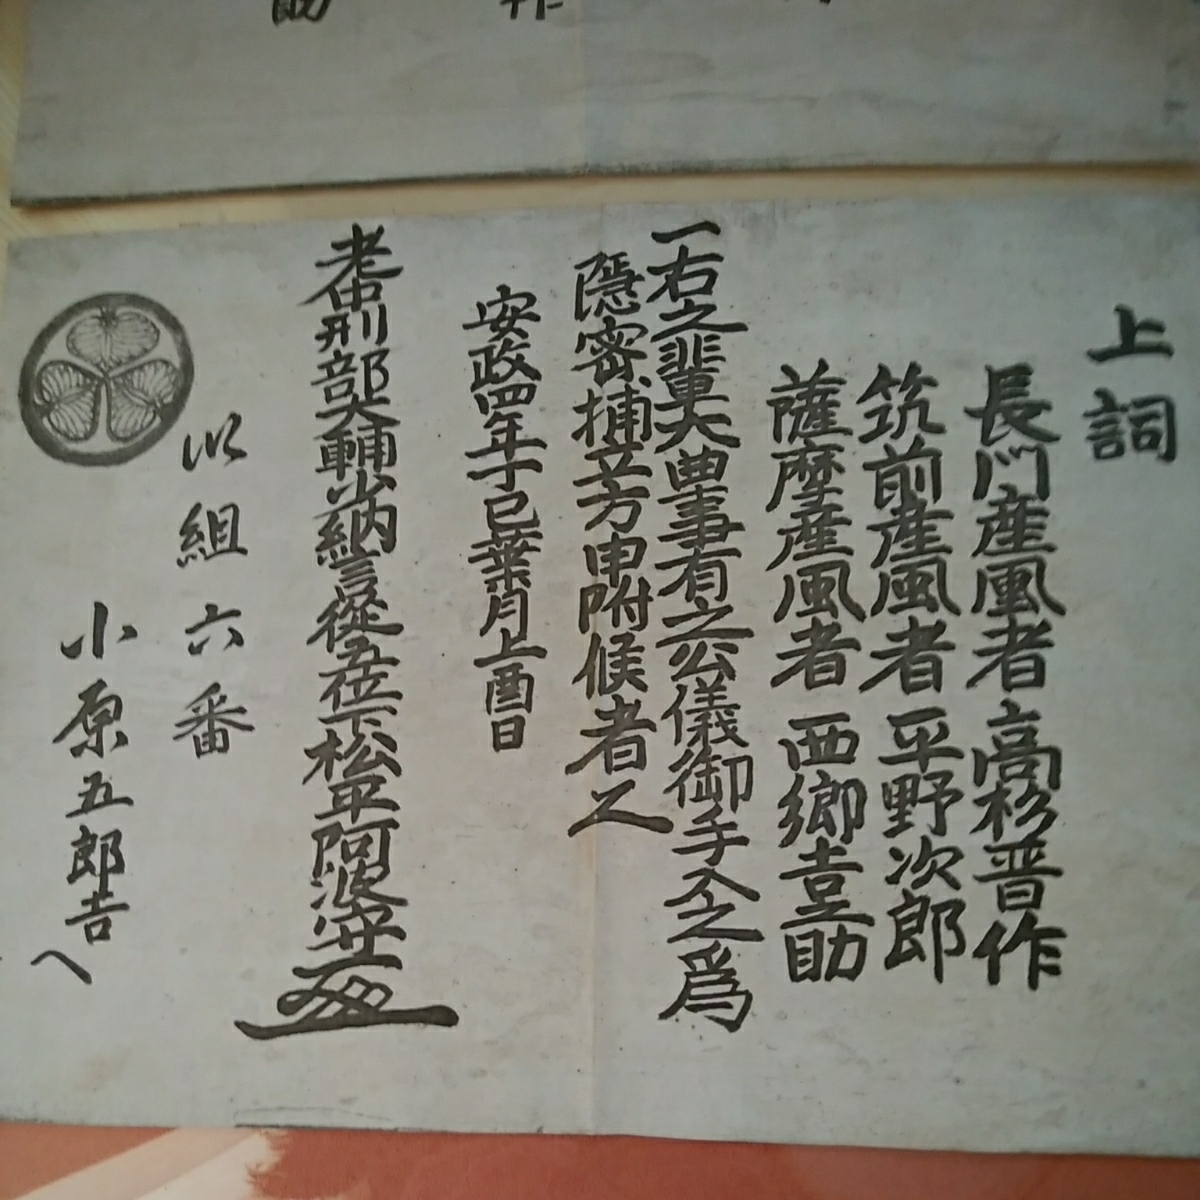 上詞
長門産風者 高杉晋作
筑前産風者 平野次郎
薩摩産風者 西郷吉之助
一右之輩重大曲事有之公儀御手入之為
隠密捕立方申附候者也
安政四年丁巳葉月上酉日
老中刑部大輔少納言従五位下松平阿波守
以組六番
小原五郎吉
へ